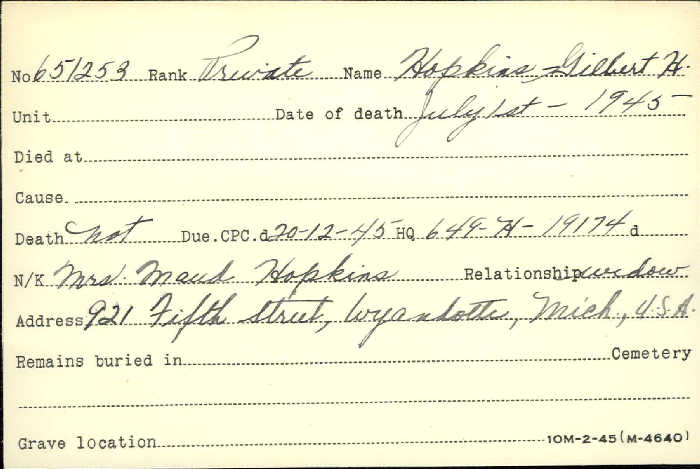 No 651253 Rank Private Name Hopkins - Gilbert H.
Unit Date of death July 1st - 1945
Died at
Cause.
Death not Due. CPC.d 20-12-45 HQ 649-H-19174 d
N/K Mrs Maud Hopkins Relationship widow
Address 921 Fifth Street, Wyandotte, Mich., U.S.A.
Remains buried in Cemetery
Grave location 10M-2-45 (M-4640)